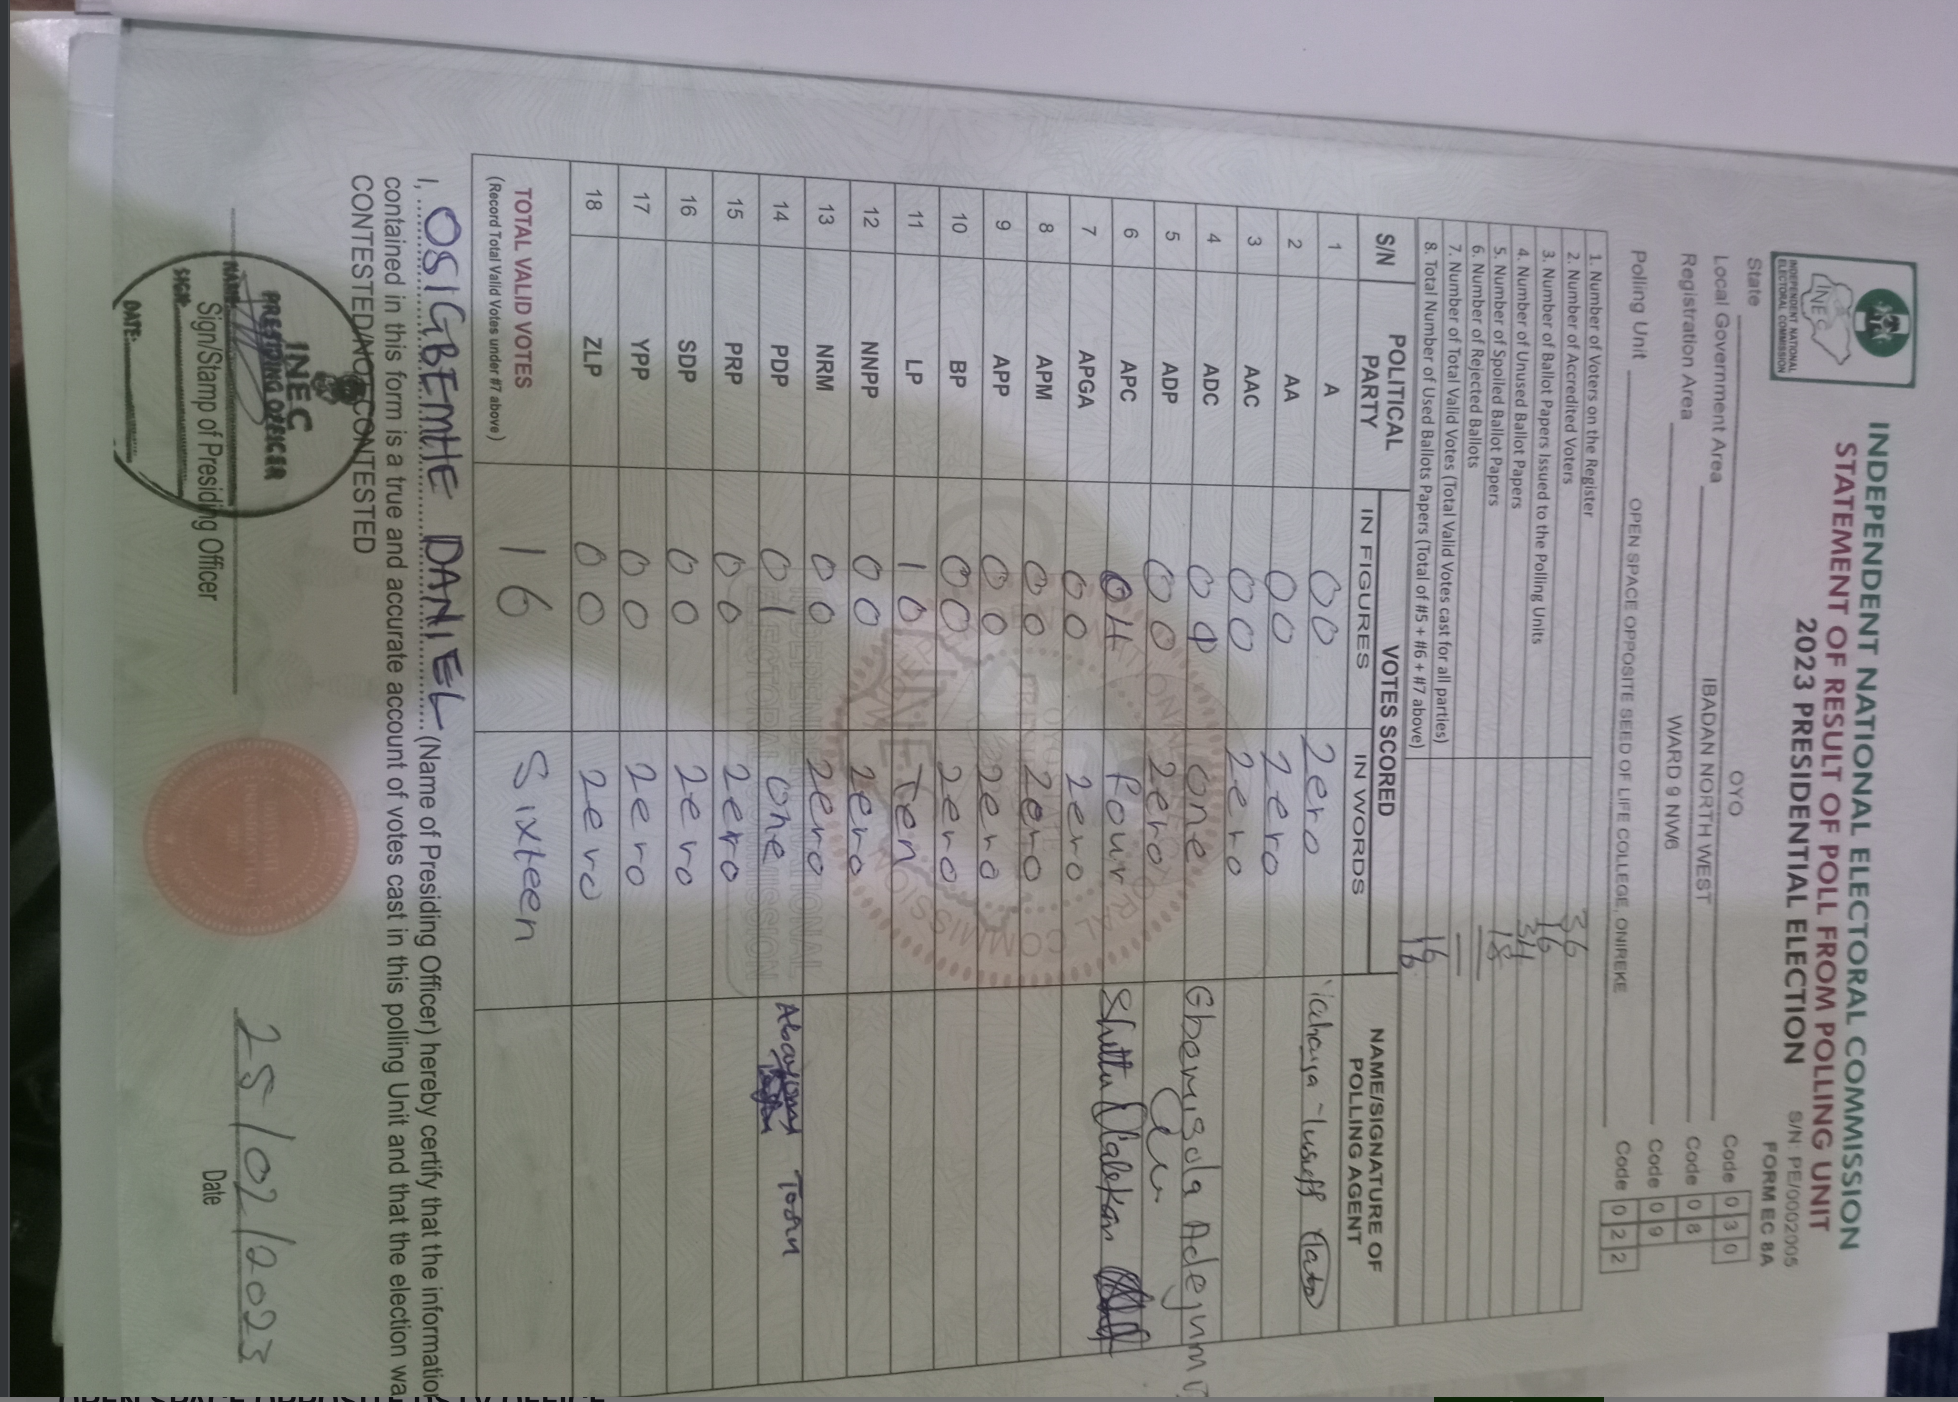 INDEPENDENT NATIONAL ELECTORAL COMMISSION
STATEMENT OF RESULT OF POLL FROM POLLING UNIT
2023 PRESIDENTIAL ELECTION
S/N: PE/0002005
FORM EC 8A
INEC
INDEPENDENT NATIONAL
ELECTORAL COMMISSION
State OYO Code 0 3 0
Local Government Area IBADAN NORTH WEST Code 0 8
Registration Area WARD 9 NW6 Code 0 9
Polling Unit OPEN SPACE OPPOSITE SEED OF LIFE COLLEGE, ONIREKE Code 0 2 2
1. Number of Voters on the Register 36
2. Number of Accredited Voters 16
3. Number of Ballot Papers Issued to the Polling Units 34
4. Number of Unused Ballot Papers 18
5. Number of Spoiled Ballot Papers
6. Number of Rejected Ballots
7. Number of Total Valid Votes (Total Valid Votes cast for all parties) 16
8. Total Number of Used Ballots Papers (Total of #5 + #6 + #7 above) 16
S/N POLITICAL PARTY VOTES SCORED NAME/SIGNATURE OF POLLING AGENT
IN FIGURES IN WORDS
1 A 00 Zero
2 AA 00 Zero
3 AAC 00 Zero
4 ADC one Gbemisola
5 ADP 00 Zero
6 APC 04 Four Shittu
7 APGA 00 Zero
8 APM 00 Zero
9 APP 00 Zero
10 BP 00 Zero
11 LP 10 Ten
12 NNPP 00 Zero
13 NRM 00 Zero
14 PDP 01 one
15 PRP 00 Zero
16 SDP 00 Zero
17 YPP 00 Zero
18 ZLP 00 Zero
TOTAL VALID VOTES 16 Sixteen
(Record Total Valid Votes under #7 above)
I, OSIGBEMHE DANIEL (Name of Presiding Officer) hereby certify that the information
contained in this form is a true and accurate account of votes cast in this polling Unit and that the election wa
CONTESTED/NOT CONTESTED
INEC
PRESIDING OFFICER
NAME:
SIGN:
DATE:
Sign/Stamp of Presiding Officer
25/02/2023
Date